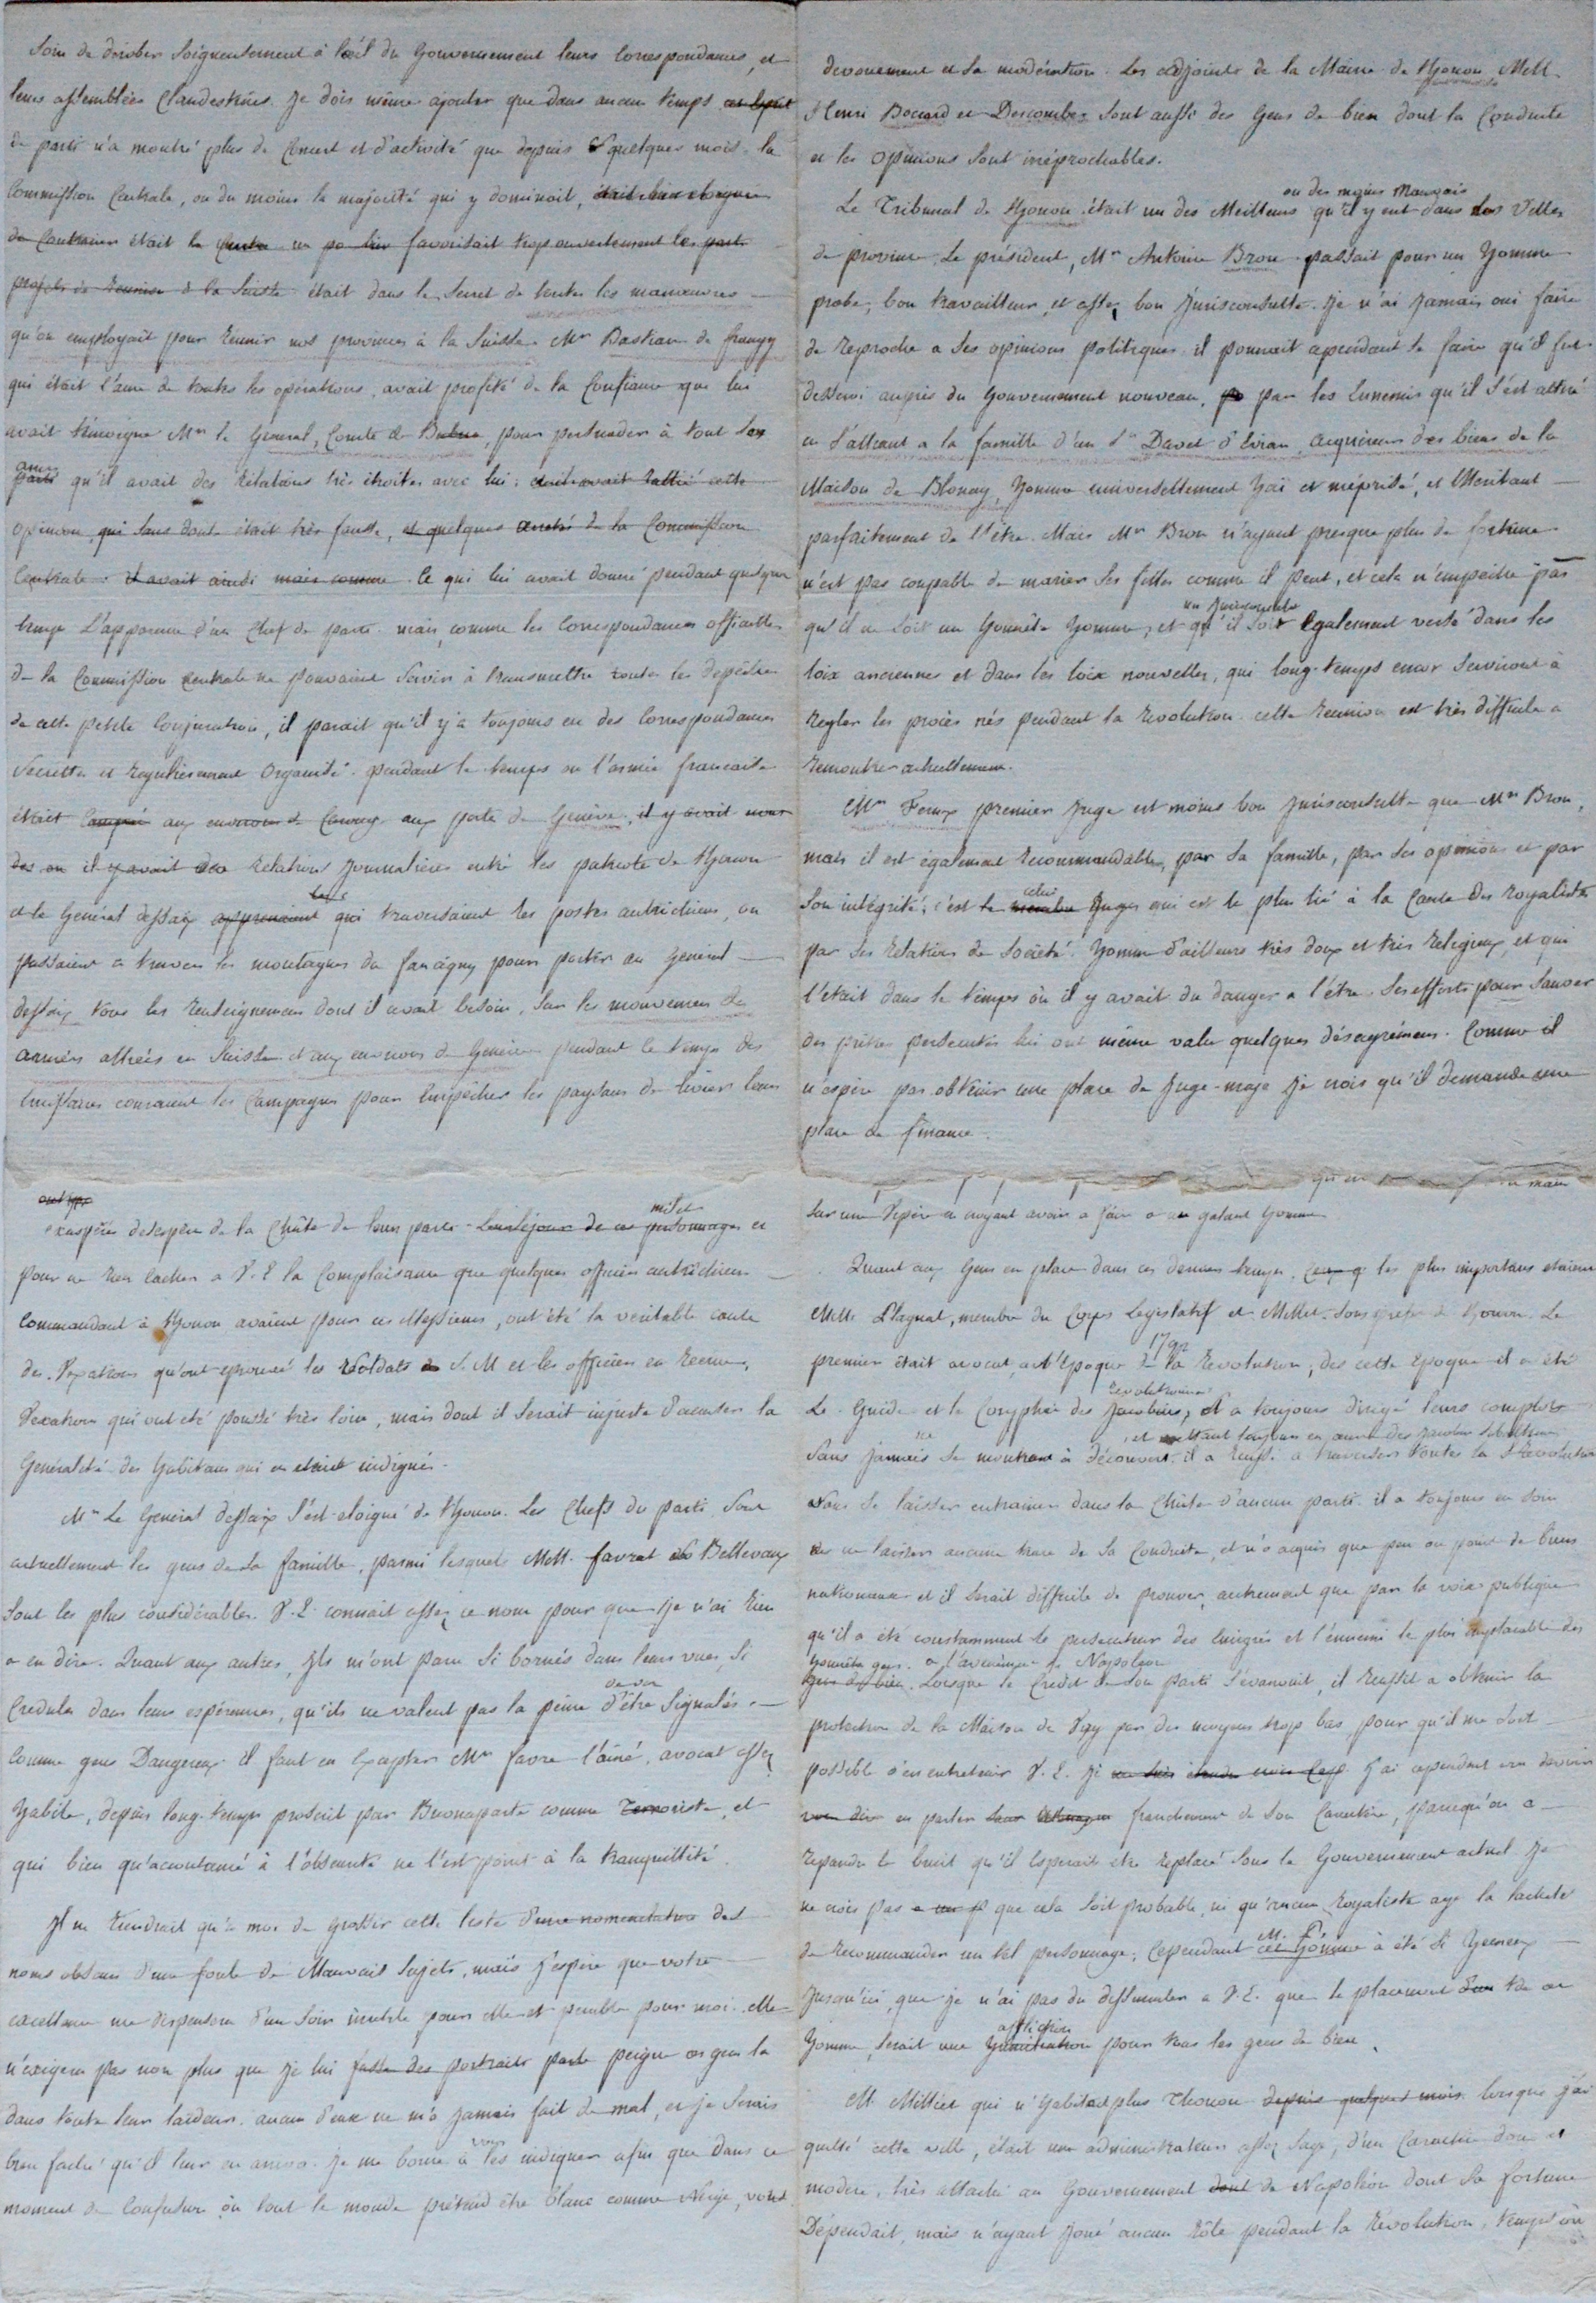 soin de dérober soigneusement à l'œil du Gouvernement leurs correspondances, et
leurs assemblées Clandestines. Je dois même ajouter que dans aucun temps cet esprit
de parti n'a montré plus de Concert et d'activité que depuis quelques mois. la
Commission Centrale, ou du moins la majorité qui y dominoit, était bien eloignée
du Contraire était la favorisait trop ouvertement les
projets de Reunion à la Suisse était dans le Secret de toutes les manœuvres
qu'on employait pour reunir nos provinces à la Suisse. Mr Bastian de frangy
qui était l'ame de toutes les opérations, avait profité de la Confiance que lui
avait témoigné Mr le General, Comte de Bubna, pour persuader à tout son
amis
parti qu'il avait des Relations très étroites avec lui; avait cette
opinion, qui sans doute était très fausse, et quelques arretés de la Commission
Centrale. il avait ainsi mais comme. Ce qui lui avait donné pendant quelque
temps L'apparence d'un Chef de parti. mais, comme les Correspondances officielles
de la Commission Centrale ne pouvaient Servir à transmettre toutes les dépêches
de cette petite Conjuration, il parait qu'il y a toujours eu des Correspondances
Secrettes et regulièrement Organisé. pendant le temps ou l'armée francaise
était aux environs de aux portes de Genève, il y avait
des il y avait des relations Journalières entre les patriotes de Thonon
et le General dessaix qui traversaient les postes autrichiens, ou
passaient a travers les montagnes du faucigny pour porter au General
dessaix tous les renseignemens dont il avait besoin, Sur les mouvemens des
armées alliées en Suisse et aux environs de Genève pendant ce temps des
Emissaires couraient les Campagnes pour Empêcher les paysans de livrer leurs
devouement et sa modération. Les adjoints de la Mairie de Thonon MM.
Henri Boccard et Descombes sont aussi des Gens de bien dont la Conduite
et les Opinions sont irréprochables.
ou des moins Mauvais
Le Tribunal de Thonon était un des Meilleurs qu'il y eut dans les Villes
de province. Le président, Mr Antoine Bron passait pour un homme
probe, bon travailleur, et assez bon Jurisconsulte. Je n'ai Jamais oui faire
de reproche a ses opinions politiques. il pourrait cependant se faire qu'il fut
desservi auprès du Gouvernement nouveau, par les Ennemis qu'il s'est attiré
en s'alliant a la famille d'un Sr Davet d'Evian, acquereur des biens de la
Maison de Blonay, homme universellement haï et méprisé, et Meritant
parfaitement de l'être. Mais Mr Bron n'ayant presque plus de fortune
n'est pas coupable de marier ses filles comme il peut, et cela n'empeche pas
qu'il ne soit un honnête homme, et qu'il soit Egalement versé dans les
loix anciennes et dans les loix nouvelles, qui long-temps encor Serviront à
Regler les procès nés pendant la revolution. cette reunion est très difficile a
rencontrer actuellement.
Mr premier Juge est moins bon Jurisconsulte que Mr Bron,
mais il est également recommandable, par sa famille, par ses opinions et par
celui
son intégrité; c'est le membre Juge qui est le plus lié à la Cause des royalistes
par ses relations de Société. homme d'ailleurs très doux et très religieux, et qui
l'était dans le temps où il y avait du danger a l'être. Ses efforts pour Sauver
des prêtres persecutés lui ont même valu quelques désagrémens. Comme il
n'espère pas obtenir une place de Juge-mage Je crois qu'il demande une
place de finance.
exaspérés desespérés de la Chûte de leur parti. Leur séjour de ces personnages et
pour ne rien cacher a V. E la Complaisance que quelques officiers autrichiens
Commandant à Thonon avaient pour ces Messieurs, ont été la veritable cause
des Vexations qu'ont eprouvé les Soldats de S. M et les officiers en recrue,
Vexations qui ont été poussé très loin, mais dont il serait injuste d'accuser la
Generalité des habitans qui en etait indignée.
Mr Le General dessaix s'est eloigné de Thonon. Les Chefs du parti sont
actuellement les gens de sa famille, parmi lesquels MM. favrat de Bellevaux
sont les plus considérables. V. E. connait assez ce nom pour que je n'ai rien
a en dire. Quant aux autres, Ils m'ont paru si bornés dans leurs vues, si
Credules dans leurs espérances, qu'ils ne valent pas la peine d'être Signalés
Comme gens Dangereux. il faut en Excepter Mr favre l'ainé, avocat assez
habile, depuis long-temps proscrit par Buonaparte comme Terroriste, et
qui bien qu'accoutumé à l'obscurité ne l'est point à la tranquillité.
Il ne tiendrait qu'à moi de grossir cette liste d'une nomenclature des
noms obscurs d'une foule de Mauvais Sujets, mais j'espère que votre
excellence me dispensera d'un soin inutile pour elle et penible pour moi. elle
n'exigera pas non plus que je lui fasse des portraits peigne ces gens la
dans toute leur laideur. aucun d'eux ne m'a jamais fait de mal, et je serais
bien faché qu'il leur en arriva. Je me borne à les indiquer afin que dans ce
moment de Confusion où tout le monde prétend être blanc comme Neige, vous
sur une Vipère en croyant avoir a faire a un galant homme
Quant aux Gens en place dans ces derniers temps, les plus importans etaient
MM. Plagnat, membre du Corps Legislatif et Millet Sous-prefet de Thonon. Le
1792
premier était avocat, a l'Epoque de la revolution, des cette époque il a été
revolutionnaires
Le Guide et le Coryphée des Jacobins; il a toujours dirigé leurs complots
, et mettant toujours en avant des Jacobins subalternes
Sans Jamais se montrer à découvert. il a reussi a traverser toute la Revolution
sans se laisser entrainer dans la Chûte d'aucun parti. il a toujours eu soin
de ne laisser aucune trace de sa Conduite, et n'a acquis que peu ou point de biens
nationaux et il serait difficile de prouver, autrement que par la voix publique
qu'il a été constamment le persecuteur des Emigrés et l'ennemi le plus implacable des
honnêtes gens. a l'avenement de Napoleon
gens de bien. Lorsque le Credit de son parti s'évanouit, il reussit a obtenir la
protection de la Maison de Viry par des moyens trop bas, pour qu'il me soit
possible d'en entretenir V. E. J'ai cependant cru devoir
en parler franchement de son Caractère, parcequ'on a
repandu le bruit qu'il Esperait être replacé sous le Gouvernement actuel. Je
ne crois pas que cela soit probable, ni qu'aucun royaliste aye la lacheté
de recommander un tel personnage; Cependant cet homme à été si heureux
Jusqu'ici, que je n'ai pas du dissimuler a V. E. que le placement d'un tel
affliction
homme, serait une humiliation pour tous les gens de bien.
M. Millet qui n'habitoit plus Thonon depuis quelques mois lorsque j'ai
quitté cette ville, était un administrateur assez sage, d'un Caractère doux et
modéré, très attaché au Gouvernement de Napoléon dont sa fortune
Dépendait, mais n'ayant joué aucun rôle pendant la Révolution, temps où